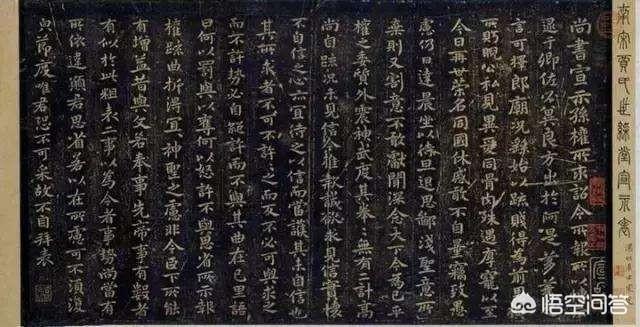 南宋賈氏世綵堂宣示表
尚書宣示孫權所求詔令所報所以博示
逮于卿佐必冀良方出於阿是芻蕘之
言可擇郎廟況繇始以疏賤得為前恩橫
所盱睨公私見異愛同骨肉殊遇厚寵以至
今日再世榮名同國休慼敢不自量竊致愚
慮仍日達晨坐以待旦退思鄙淺聖意所
棄則又割意不敢獻聞深念天下今為已平
權之委質外震神武度其拳拳無有二計高
尚自疏況未見信今推款誠欲求見信實懷
不自信之心亦宜待之以信而當護其未自信也
其所求者不可不許許之而反不必可與求之
而不許勢必自絕許而不與其曲在己里語
曰何以罰與以奪何以怒許不與思省所示報
權疏曲折得宜宜神聖之慮非今臣下所能
有增益昔與文若奉事先帝事有數者
有似於此粗表二事以為今者事勢尚當有
所依違願君思省若以在所慮可不須復
貌節度唯君恐不可采故不自拜表
悟空问答